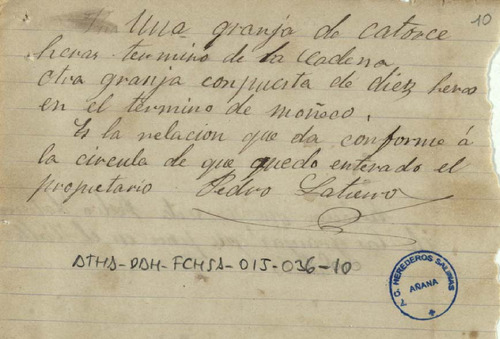 10
Una granja de catorce
heras termino de la Cadena
otra granja conpuesta de diez heras
en el termino de
Es la relacion que da conforme á
la circula de que quedo enterado el
propietario Pedro
ATHA-DAH-FCHSA-015-036-10
C. HEREDEROS SALINAS
AÑANA